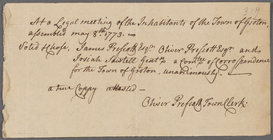 At a Legal meeting of the Inhabitants of the Town of Groton
assembled may 8th 1773. —
Voted & chose. James Prescott Esqr. Oliver Prescott Esqr. and
Josiah Sartell Gentn. a Comtee. of Correspondence
for the Town of Groton, unanimously. —
a true Coppy attested —
Oliver Prescott Town Clerk